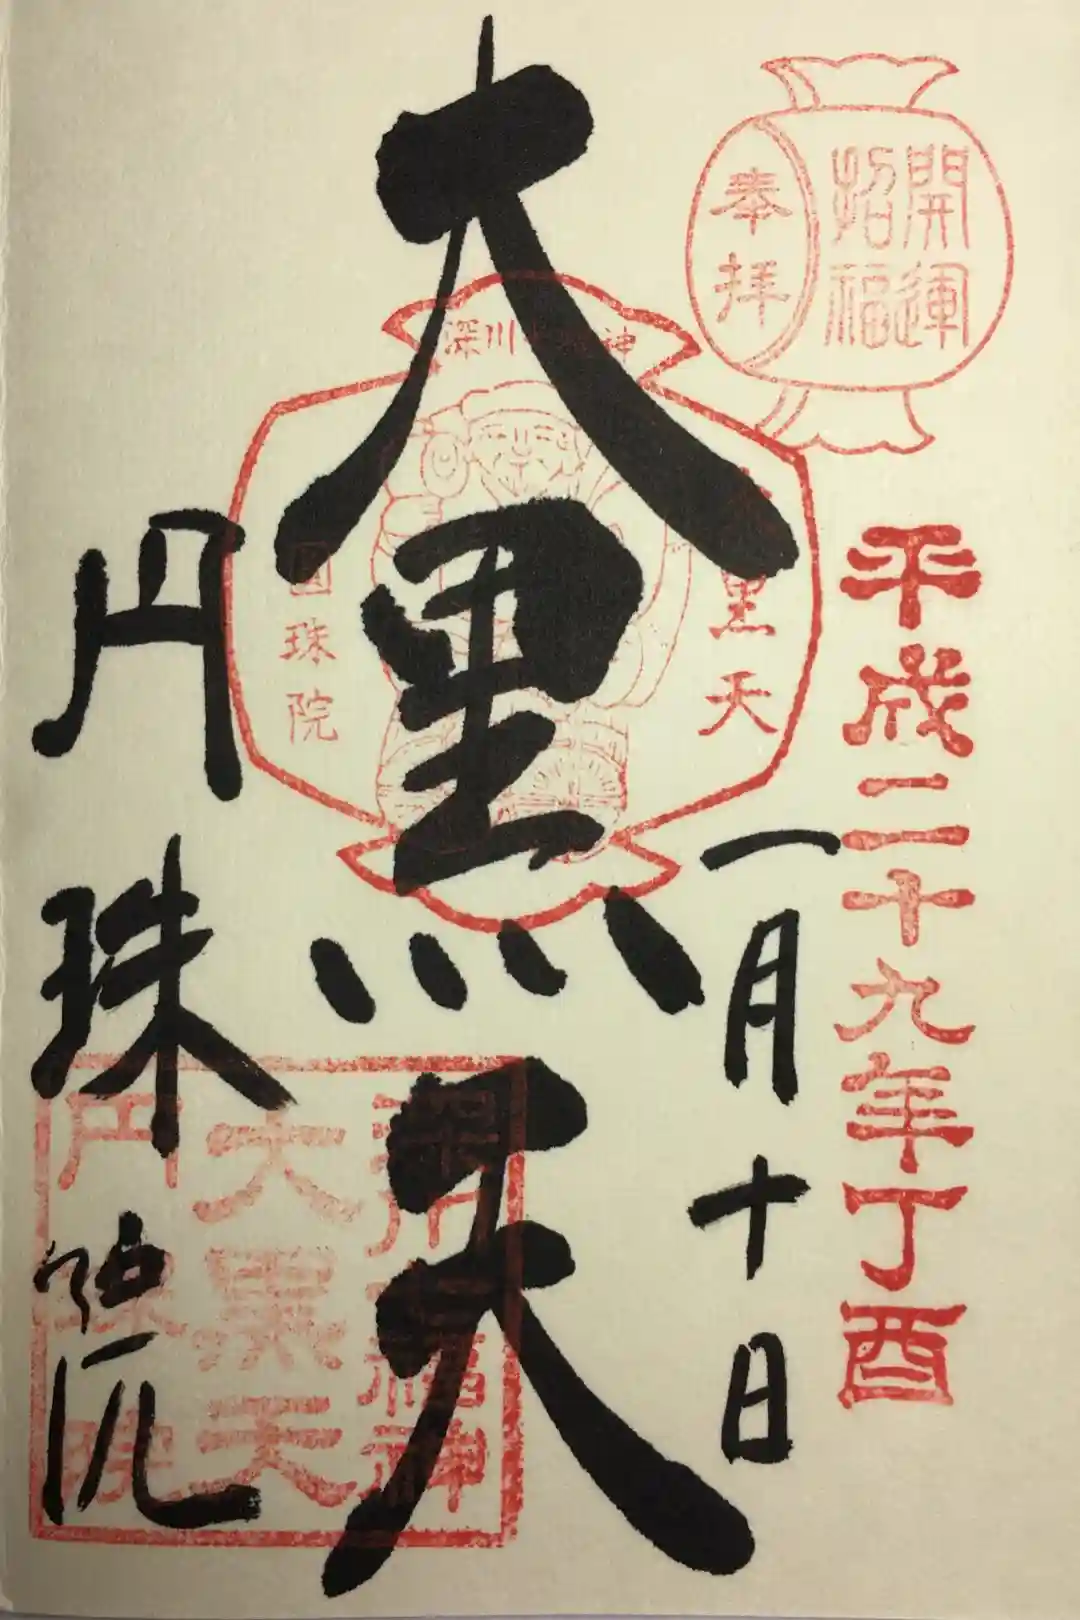 開運
招福
奉拝
平成二十九年丁酉
一月十日
深川七福神
大黒天
圓珠院
大黒天
深川七福神
大黒天
円珠院
円珠院